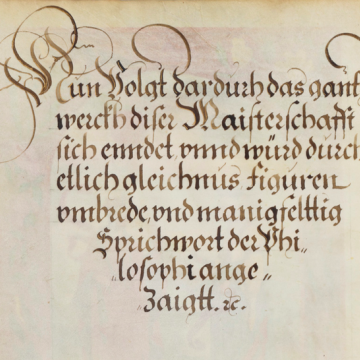 Nun Volgt dardurh das gantz
werckh diser Maisterschafft
sich enndet, vnnd würd durch
etlich gleichnus figuren
vmbrede, vnd manigfelttig
Sprichwort der Phi„
losophi ange„
Zaigtt. ꝛc.